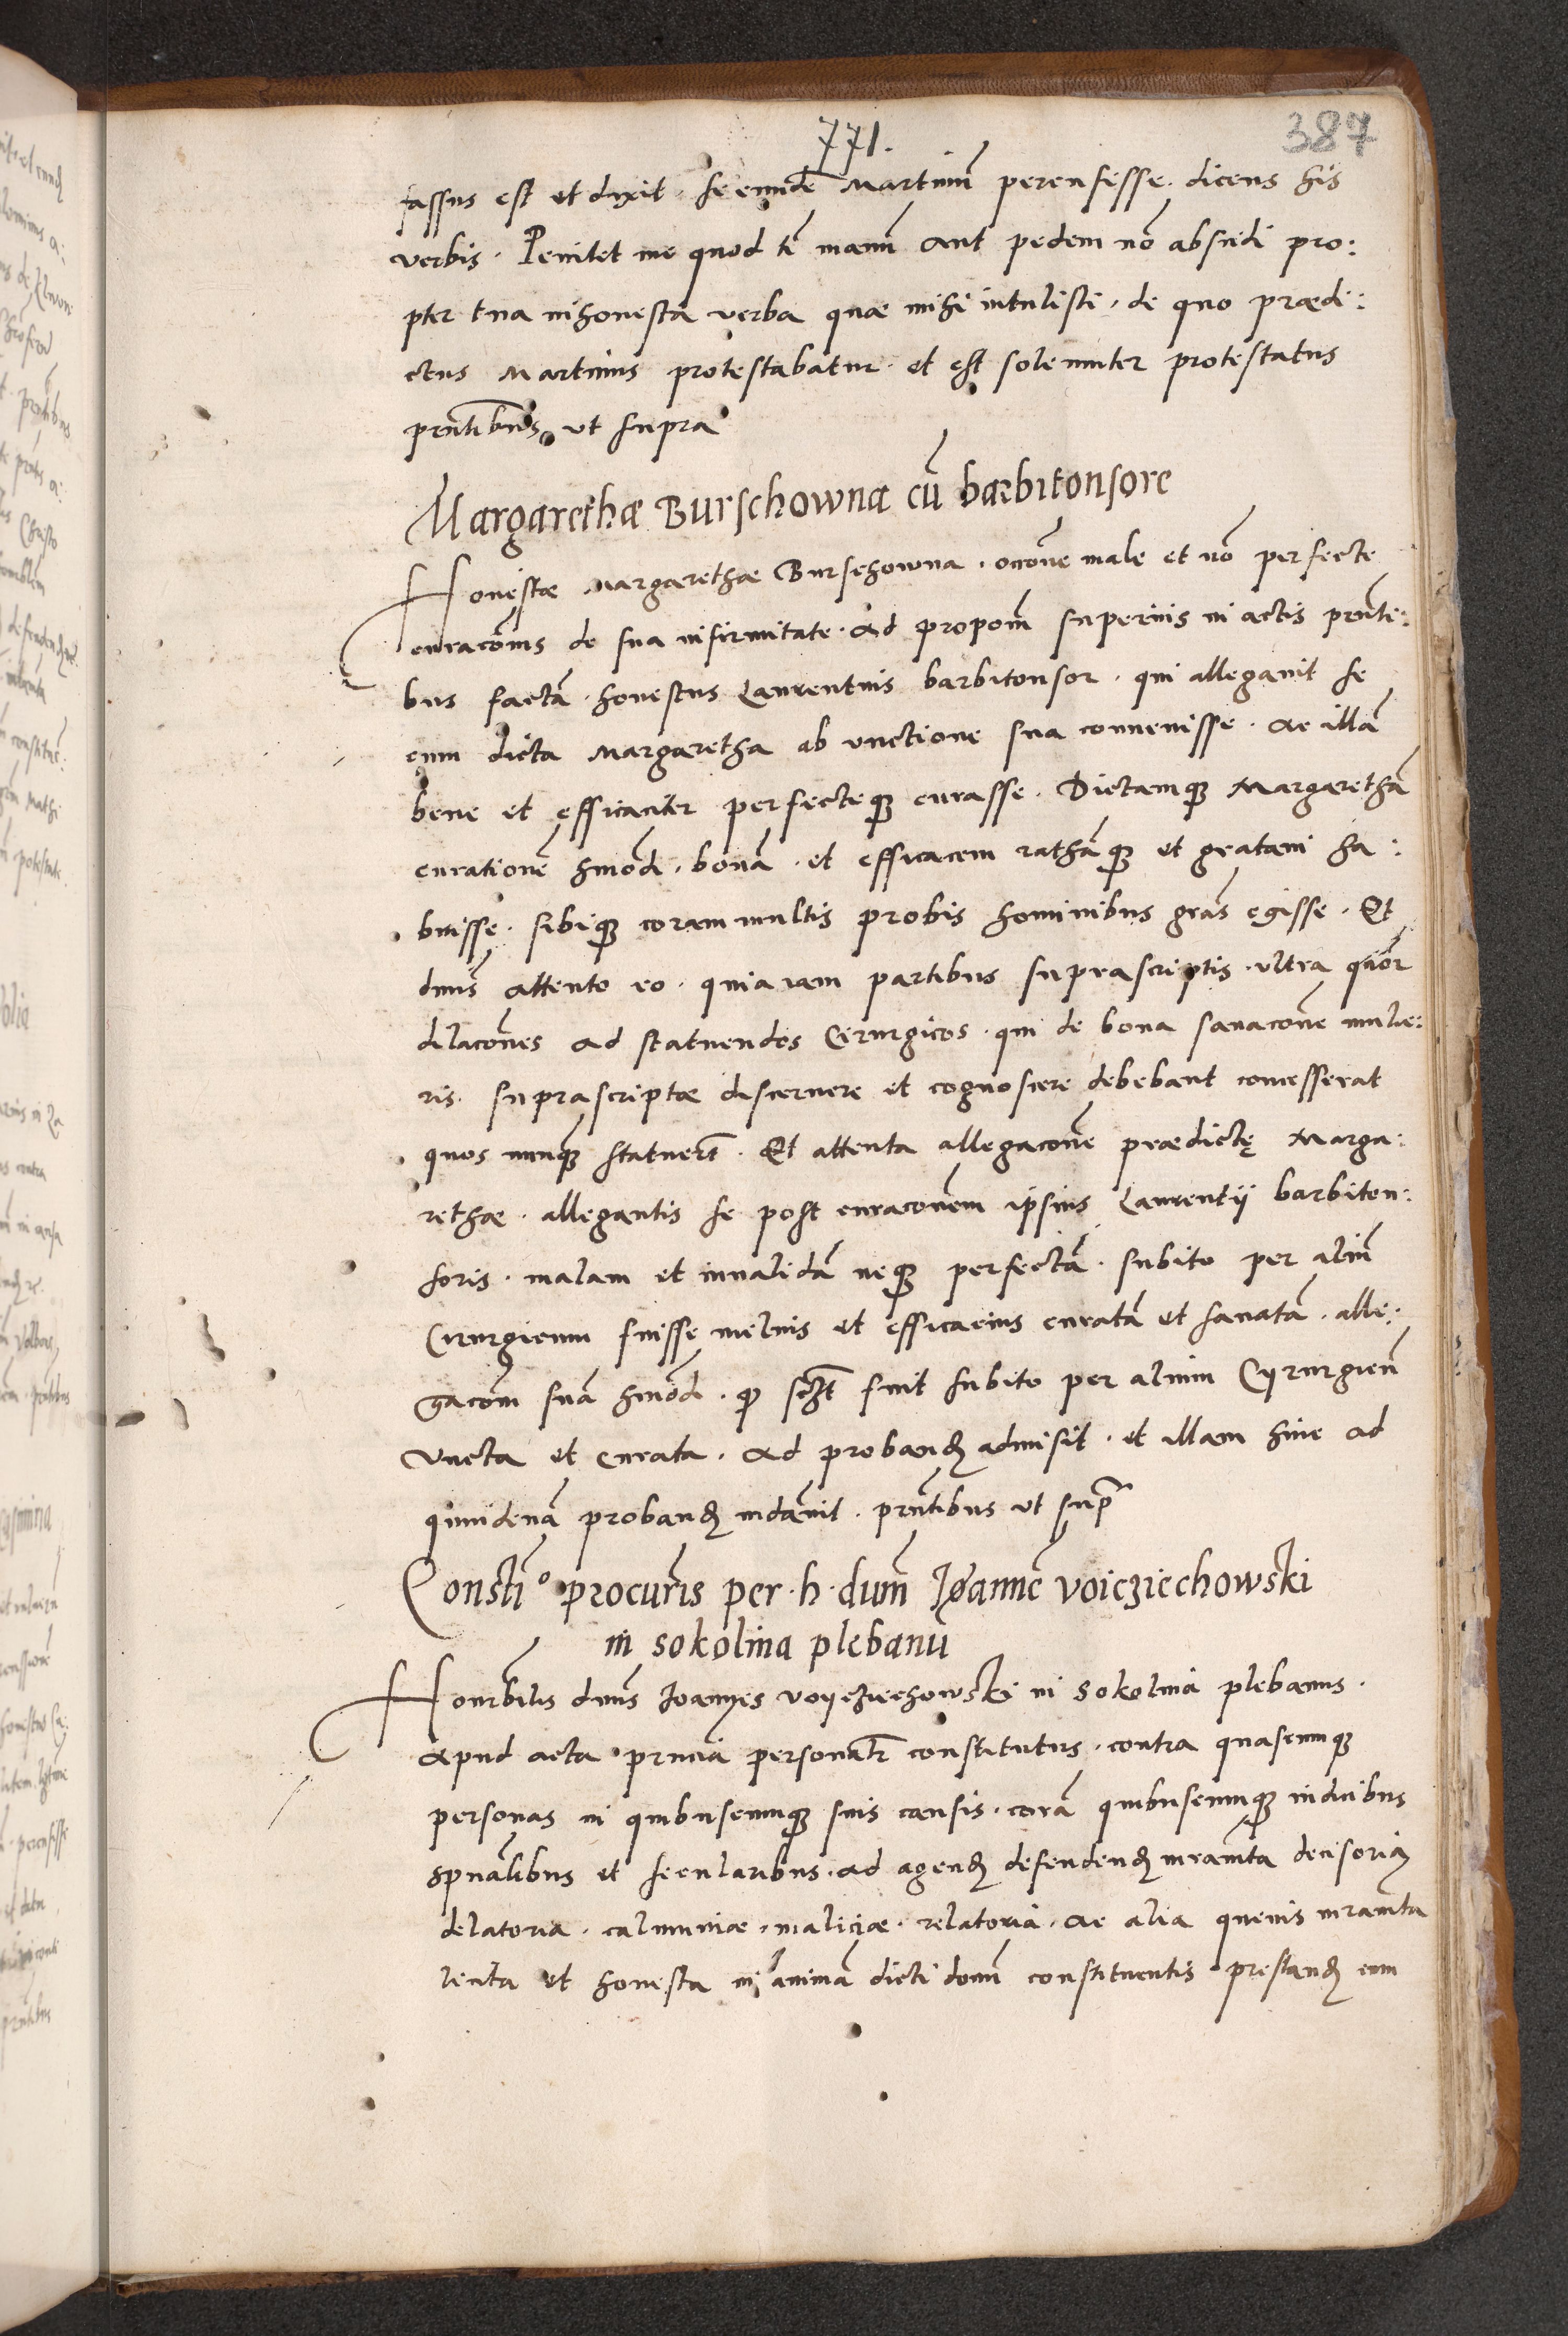 771.
387
fassus est et dixit. se eundē Martinū percussisse. dicens his
verbis. Penitet me quod tī manū aut pedem nō abscidi pro:
pter tua inhonesta verba quae mihi intulisti. de quo praedi:
ctus Martinus protestabatur. et est solemniter protestatus
pn̄tibus ut supra
Margarethae Burschowna cū barbitonsore
Honestae Margarethae Burschowna. occōne male et nō perfecte
curacōnis de sua infirmitate. ad propoōm superius in actis pn̄ti:
bus factā. honestus Laurentius barbitonsor. qui allegauit se
cum dicta Margaretha ab vnctione sua conuenisse. ac illā
bene et efficaciter perfecteq̃ curasse. Dictamq̃ Margarethā
curationē hm̄oi. bonā. et efficacem rathāq̃ et gratam ha:
buisse. sibiq̃ coram multis probis hominibus grās egisse. Et
dn̄us attento eo. quia iam partibus suprascriptis. vltra quōr
dilacōnes ad statuendos Cirurgicos. qui de bona sanacōne mulie:
ris. suprascriptae discernere et cognoscere debebant concesserat
quos nunq̃ statuer̄t. Et attenta allegacōne praedictę Marga:
rethae. allegantis se post curacōnem ipsius Laurentij barbiton:
soris. malam et inualidā neq̃ perfectā. subito per aliū
Cirurgicum fuisse melius et efficacius curatā et sanatā. alle:
gacōm suā hm̄oi. q̃ sc̄t fuit subito per alium Cyrurgicū
vncta et curata. ad proband̃ admisit. et illam hinc ad
quindenā proband̃ indāuit. pn̄tibus ut sup̄
Constiō procuris̄ per. h. dn̄m Ioannē voicziechowski
in sokolina plebanū
Honorb̄ilis dn̄us Ioannes voyczieechowski in Sokolina plebanus.
apud acta pn̄cia personalr̄ constitutus. contra quascunq̃
personas in quibuscunq̃ suis causis. corā quibuscunq̃ iudicibus
spūalibus et secularibus. ad agend̃ defendend̃ iuramēta decisoria
delatoria. calumniae. maliciae. relatoria. ac alia queuis iuramēta
licita et honesta in animā dicti domī constituentis prestand̃ cum